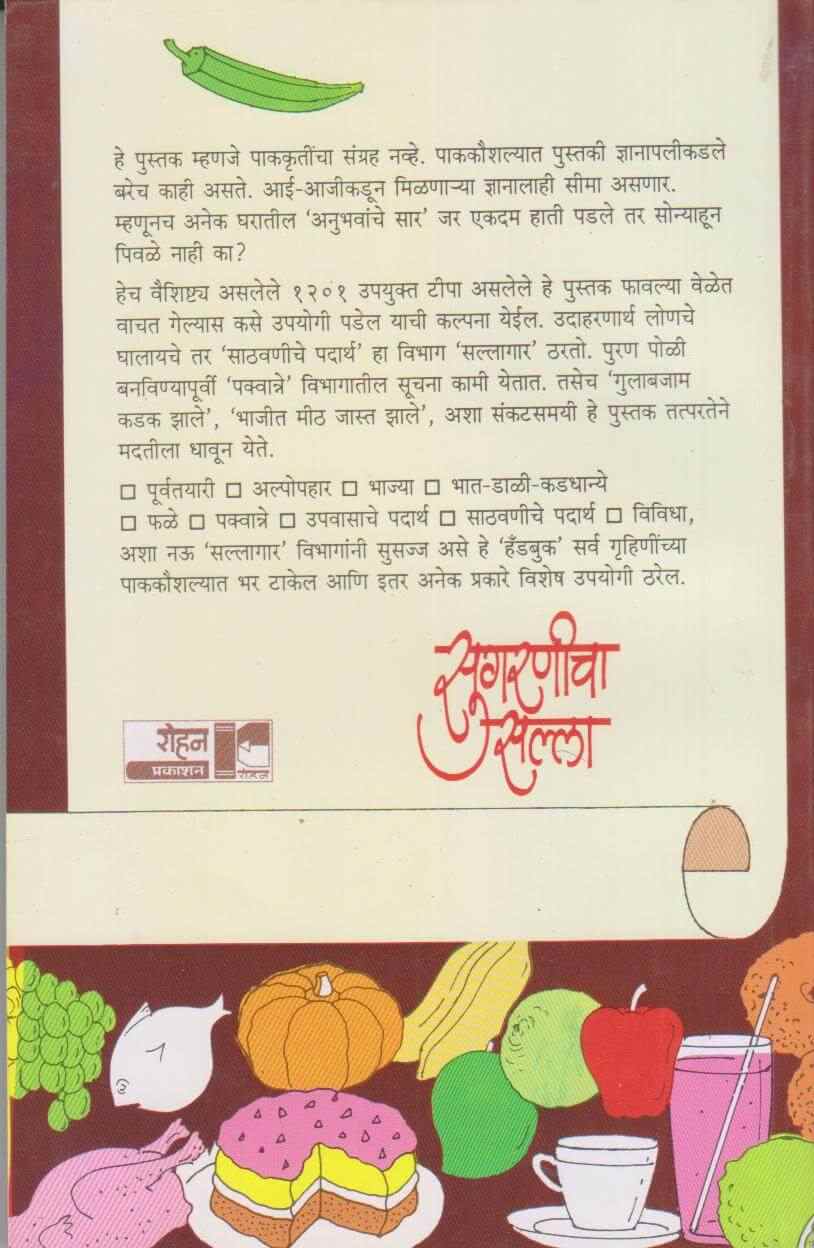 हे पुस्तक म्हणजे पाककृतींचा संग्रह नव्हे. पाककौशल्यात पुस्तकी ज्ञानापलीकडले
बरेच काही असते. आई-आजीकडून मिळणाऱ्या ज्ञानालाही सीमा असणार.
म्हणूनच अनेक घरातील ‘अनुभवांचे सार’ जर एकदम हाती पडले तर सोन्याहून
पिवळे नाही का?
हेच वैशिष्ट्य असलेले १२०१ उपयुक्त टीपा असलेले हे पुस्तक फावल्या वेळेत
वाचत गेल्यास कसे उपयोगी पडेल याची कल्पना येईल. उदाहरणार्थ लोणचे
घालायचे तर ‘साठवणीचे पदार्थ’ हा विभाग ‘सल्लागार’ ठरतो. पुरण पोळी
बनविण्यापूर्वी ‘पक्वान्ने’ विभागातील सूचना कामी येतात. तसेच ‘गुलाबजाम
कडक झाले’, ‘भाजीत मीठ जास्त झाले’, अशा संकटसमयी हे पुस्तक तत्परतेने
मदतीला धावून येते.
□ पूर्वतयारी □ अल्पोपहार □ भाज्या □ भात-डाळी-कडधान्ये
□ फळे □ पक्वान्ने □ उपवासाचे पदार्थ □ साठवणीचे पदार्थ □ विविधा,
अशा नऊ ‘सल्लागार’ विभागांनी सुसज्ज असे हे ‘हँडबुक’ सर्व गृहिणींच्या
पाककौशल्यात भर टाकेल आणि इतर अनेक प्रकारे विशेष उपयोगी ठरेल.
सुगरणीचा
सल्ला
रोहन
प्रकाशन
रोहन